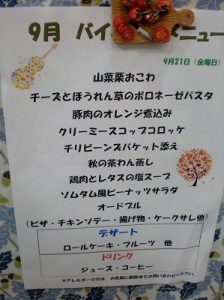 9月 バイ メニュー
9月21日(金曜日)
山菜栗おこわ
チーズとほうれん草のボロネーゼパスタ
豚肉のオレンジ煮込み
クリーミースコップコロッケ
チリビーンズバケット添え
秋の茶わん蒸し
鶏肉とレタスの塩スープ
ソムタム風ピーナッツサラダ
オードブル
(ピザ・チキンソテー・揚げ物・ケークサレ他)
デザート
ロールケーキ・フルーツ 他
ドリンク
ジュース・コーヒー